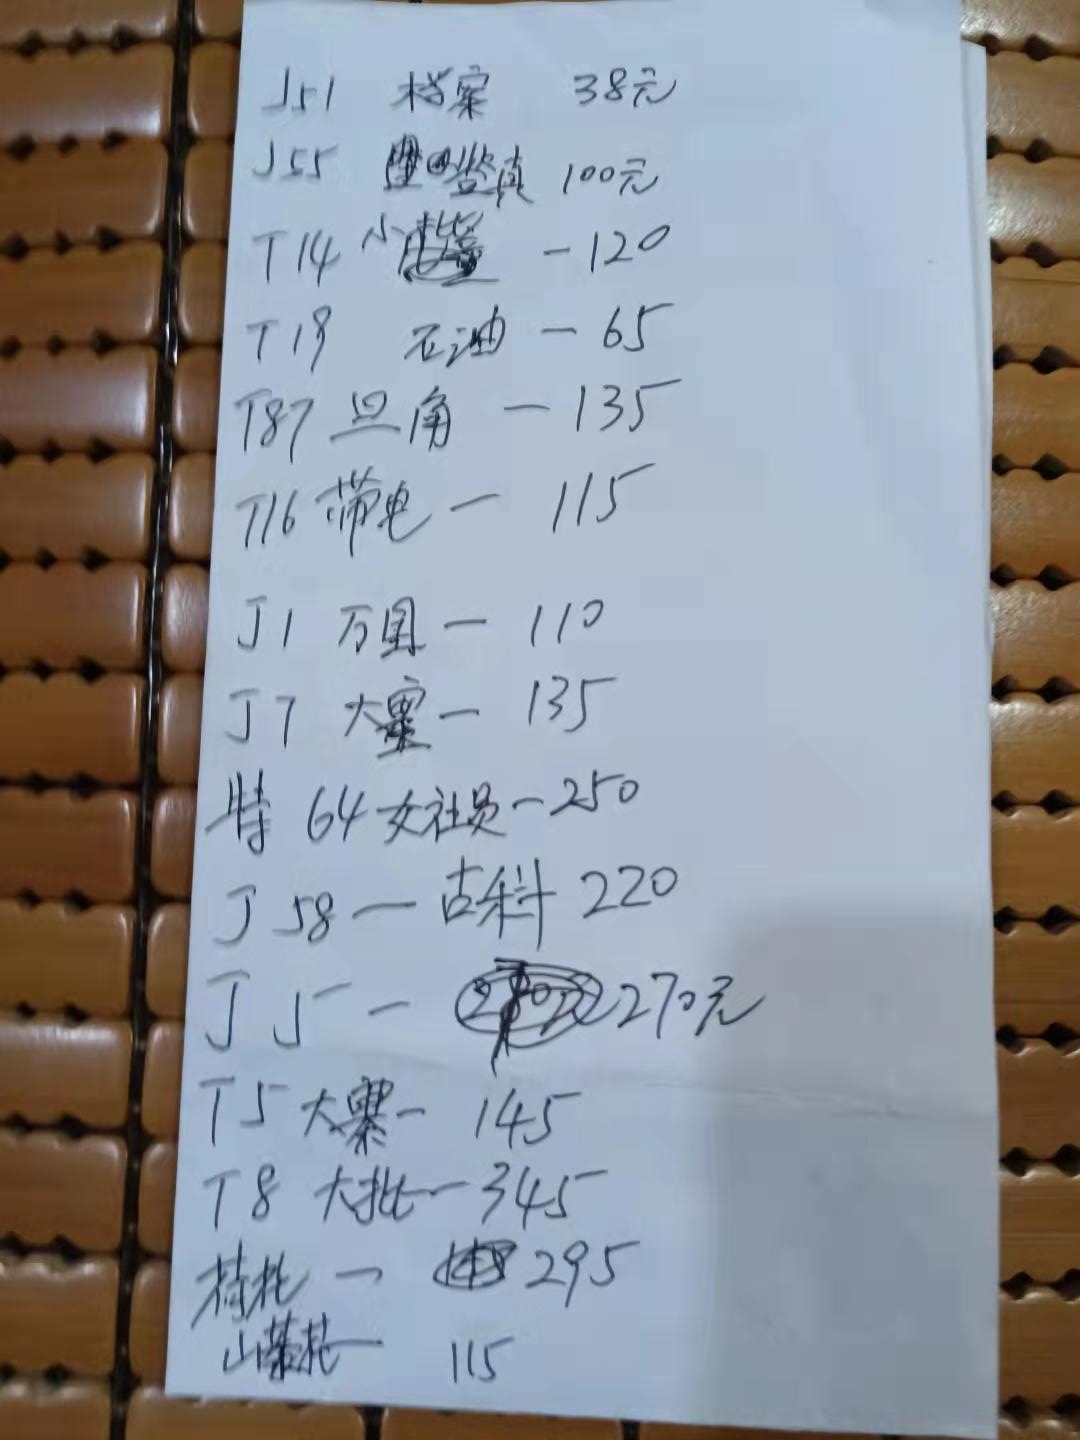 J51 档案 38元
J55 鉴真 100元
T14 小 一120
T19 石油 一 65
T87 旦角 一 135
T16 带电 一 115
J1 万国 一 110
J7 大寨 一 135
特 64 女社员一250
J 58 一 古科 220
J 5 一 270元
T5 大寨一 145
T8 大批一345
一 295
山茶花一 115